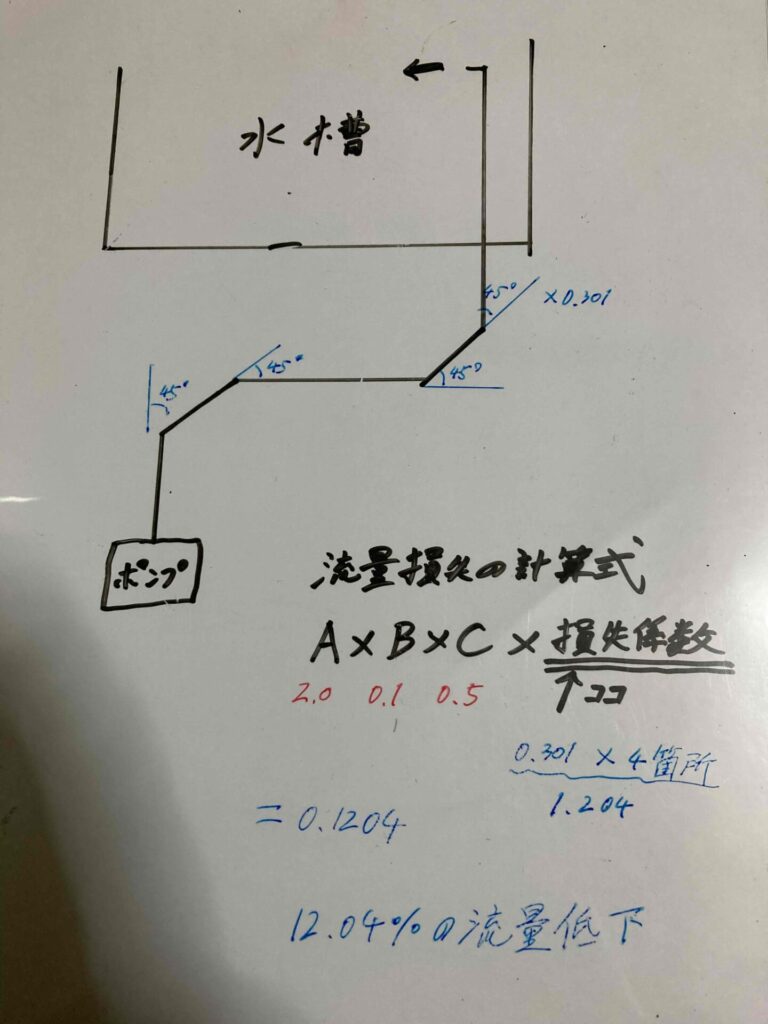 水槽
45° ×0.301
45°
45°
45°
ポンプ
流量損失の計算式
A×B×C×損失係数
2.0 0.1 0.5 ↑ココ
0.301 × 4箇所
1.204
= 0.1204
12.04%の流量低下